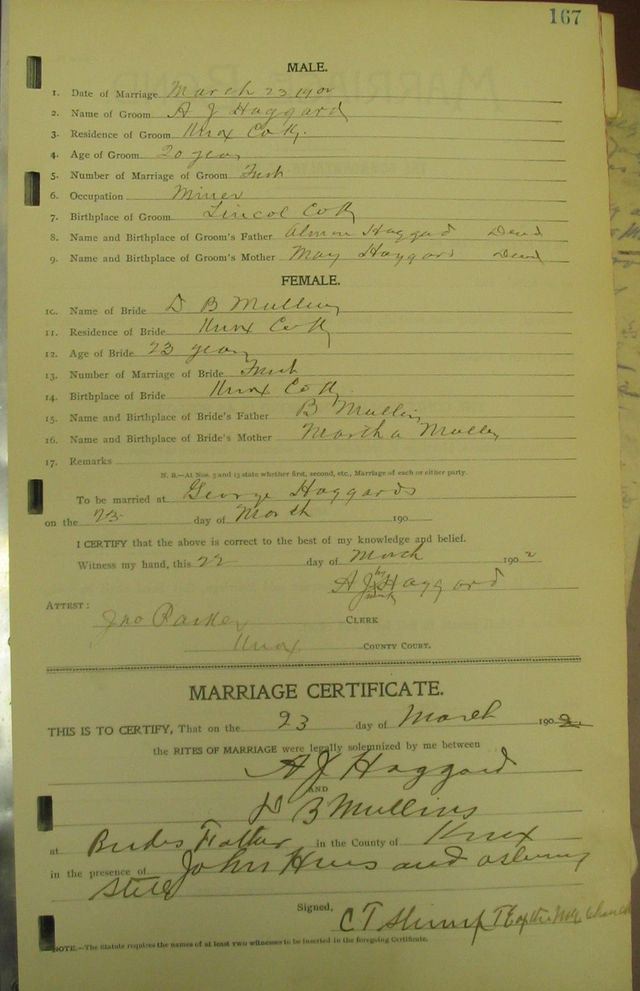 167
MALE.
1. Date of Marriage March 23 1902
2. Name of Groom A J Haggard
3. Residence of Groom Knox Co Ky.
4. Age of Groom 20 years
5. Number of Marriage of Groom First
6. Occupation Miner
7. Birthplace of Groom Lincol Co Ky
8. Name and Birthplace of Groom's Father Haggard Dead
9. Name and Birthplace of Groom's Mother May Haggard Dead
FEMALE.
10. Name of Bride D B Mullins
11. Residence of Bride Knox Co Ky
12. Age of Bride 23 years
13. Number of Marriage of Bride First
14. Birthplace of Bride Knox Co Ky
15. Name and Birthplace of Bride's Father B Mullins
16. Name and Birthplace of Bride's Mother Martha
17. Remarks
N. B.—At Nos. 5 and 13 state whether first, second, etc., Marriage of each or either party.
To be married at George Haggards
on the 23 day of March 190
I CERTIFY that the above is correct to the best of my knowledge and belief.
Witness my hand, this 22 day of March 1902
A J Haggard
ATTEST:
Jno Parker CLERK
Knox COUNTY COURT.
MARRIAGE CERTIFICATE.
THIS IS TO CERTIFY, That on the 23 day of March 1902
the RITES OF MARRIAGE were legally solemnized by me between
A J Haggard
AND
D B Mullins
at Brides Father in the County of Knox
in the presence of John and
Signed,
C T
NOTE.—The Statute requires the names of at least two witnesses to be inserted in the foregoing Certificate.